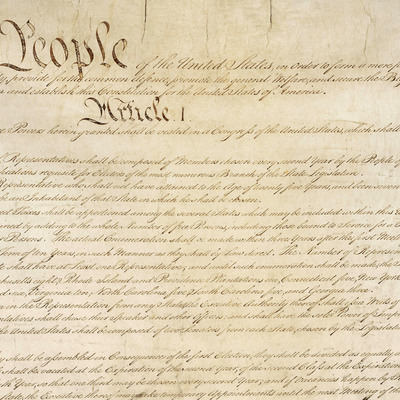 People of the United States, in Order to form a more perf
ty, provide for the common defence, promote the general Welfare, and secure the B
and establish this Constitution for the United States of America.
Article I.
Powers herein granted shall be vested in a Congress of the United States, which shall
Representatives shall be composed of Members chosen every second Year by the People of
requisite for Electors of the most numerous Branch of the State Legislature.
Representative who shall not have attained to the Age of twenty five Years, and been seven
be an Inhabitant of that State in which he shall be chosen.
Taxes shall be apportioned among the several States which may be included within this
by adding to the whole Number of free Persons, including those bound to Service for a
Persons. The actual Enumeration shall be made within three Years after the first Meet
Term of ten Years, in such Manner as they shall by Law direct. The Number of Represen
shall have at Least one Representative; and until such enumeration shall be made,
eight, Rhode Island and Providence Plantations one, Connecticut five, New York
six, Virginia ten, North Carolina five, South Carolina five, and Georgia three.
in the Representation from any State, the Executive Authority thereof shall issue Writs of
shall chuse their Speaker and other Officers; and shall have the sole Power of Imp
United States shall be composed of two Senators from each State, chosen by the Legislat
shall be assembled in Consequence of the first Election, they shall be divided as equally
shall be vacated at the Expiration of the second Year, of the second Class at the Expiration
Year, so that one third may be chosen every second Year; and if Vacancies happen by
State, the Executive thereof may make temporary Appointments until the next Meeting of